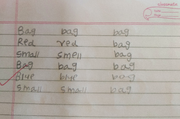 Bag bag bag
Red red bag
Small small bag
Bag bag bag
Blue blue bag
Small small bag